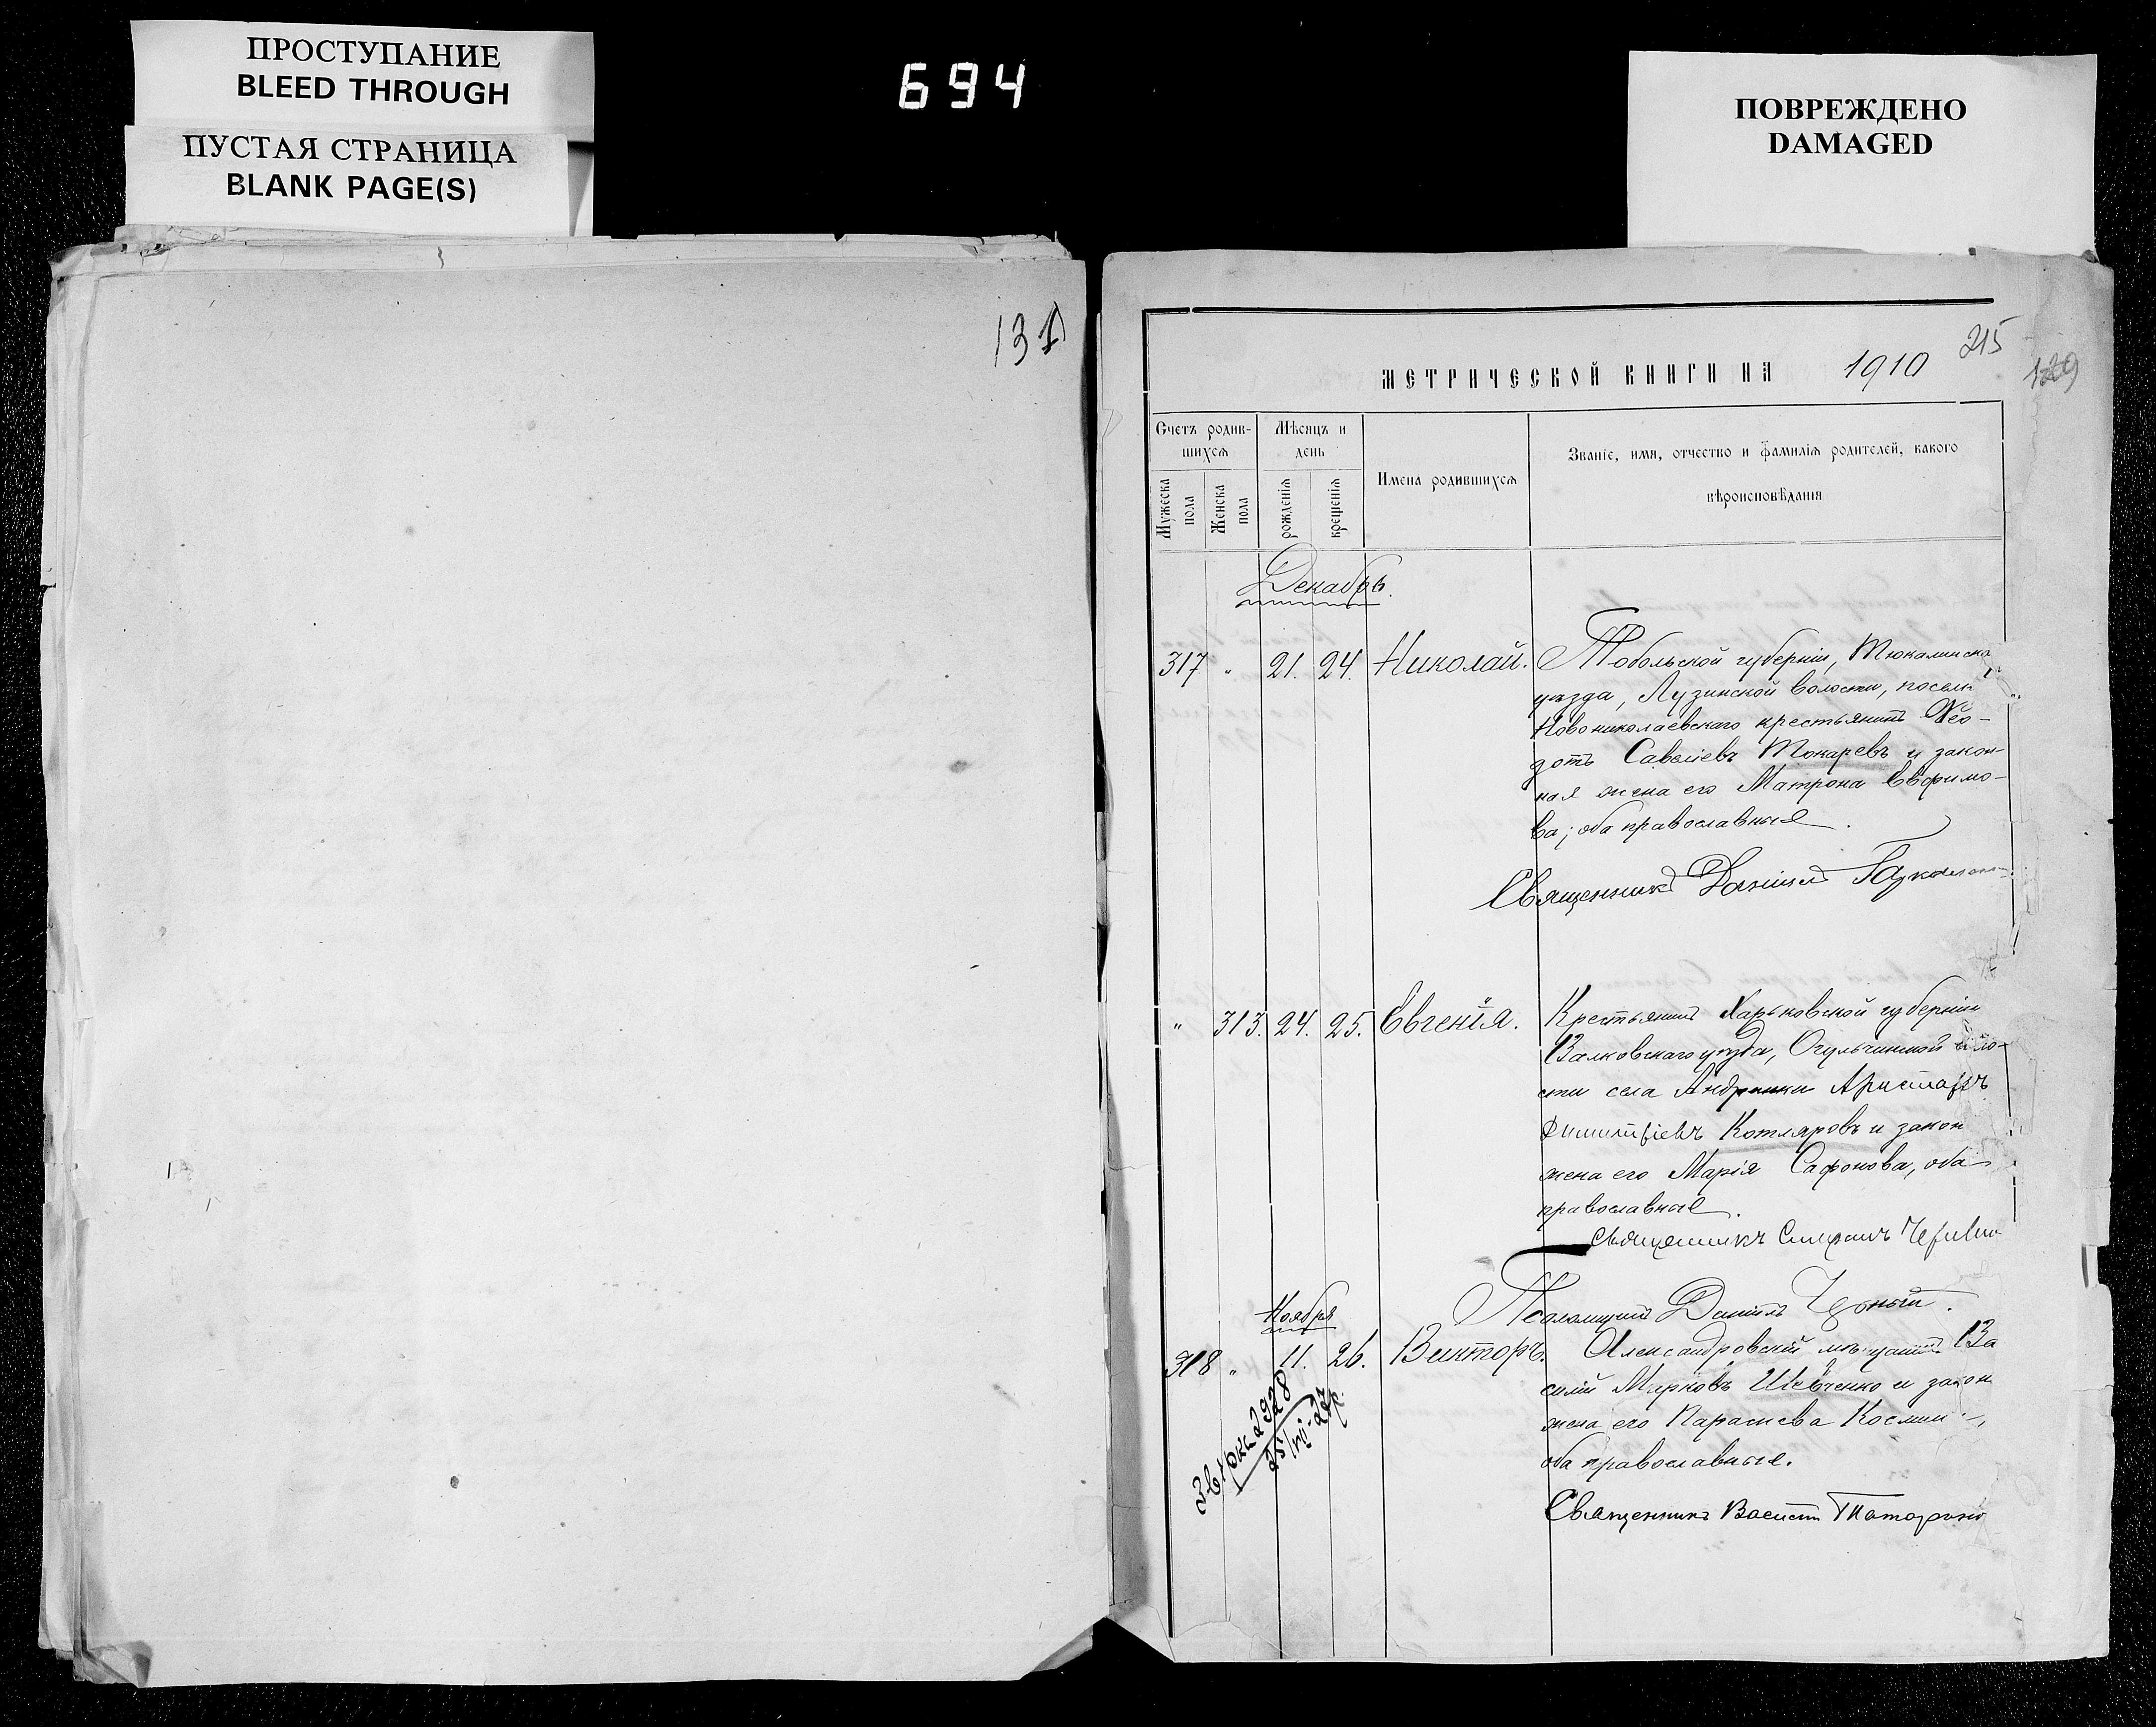 ПРОСТУПАНИЕ
BLEED THROUGH
ПУСТАЯ СТРАНИЦА
BLANK PAGE(S)
694
ПОВРЕЖДЕНО
DAMAGED
131
215
129
МЕТРИЧЕСКОЙ КНИГИ НА 1910
Счетъ родившихся
Мужеска пола
Женска пола
Мѣсяцъ и день
рожденія
крещенія
Имена родившихся
Званіе, имя, отчество и фамилія родителей, какого
вѣроисповѣданія
Декабрь.
317 " 21. 24. Николай. Тобольской губерніи, Тюкалинска
уѣзда, Лузинской волости, посел
Новониколаевскаго крестьянинъ Ѳео-
дотъ Савеліевъ Токаревъ и закон-
ная жена его Матрона Евфимо-
ва; оба православные.
Священникъ Даніилъ
" 313. 24. 25. Евгенія. Крестьянинъ Харьковской губерніи
Валковскаго уѣзда, Огульчинской воло-
сти села Аристархъ
Димитріевъ Котляровъ и закон
жена его Марія Сафонова, оба
православные.
Священникъ
Псаломщикъ Даніилъ Черный.
Ноября
318 " 11. 26. Викторъ. Александровскій мѣщанинъ Ва
силій Марковъ Шевченко и закон
жена его Параскева Космин
оба православные.
Священникъ Василій
2928
25/VII-27